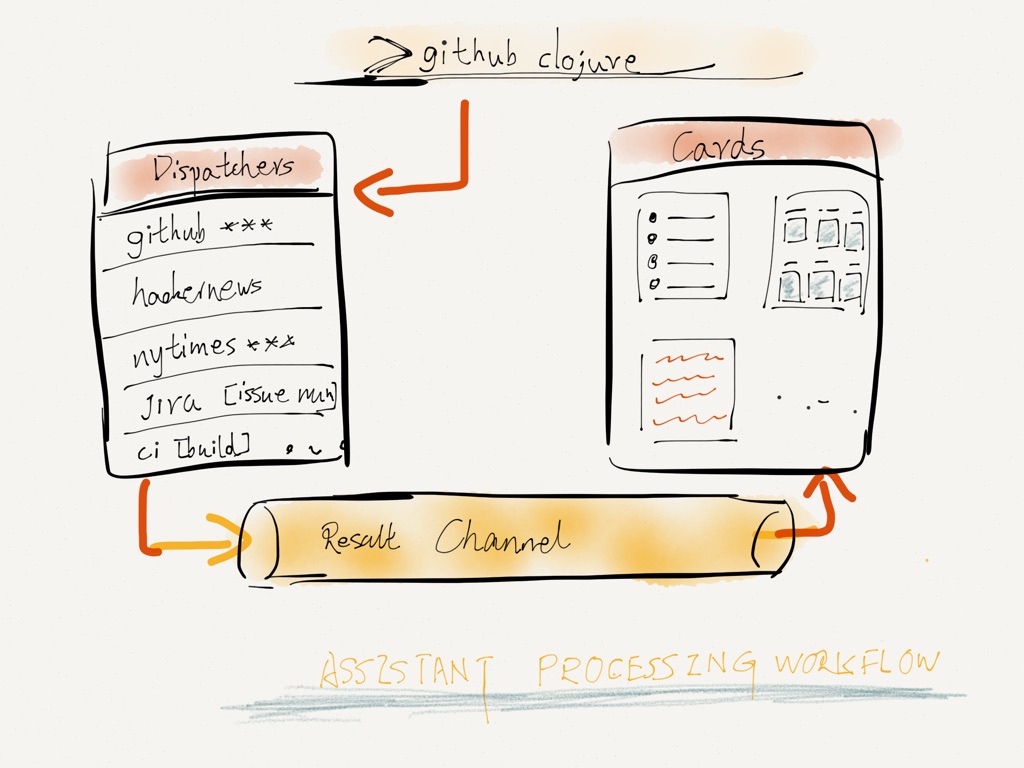 > github clojure
Dispatchers
github ***
hackernews
nytimes ***
Jira [issue num]
ci [build] . ~ .
Cards
Result Channel
ASSISTANT PROCESSING WORKFLOW